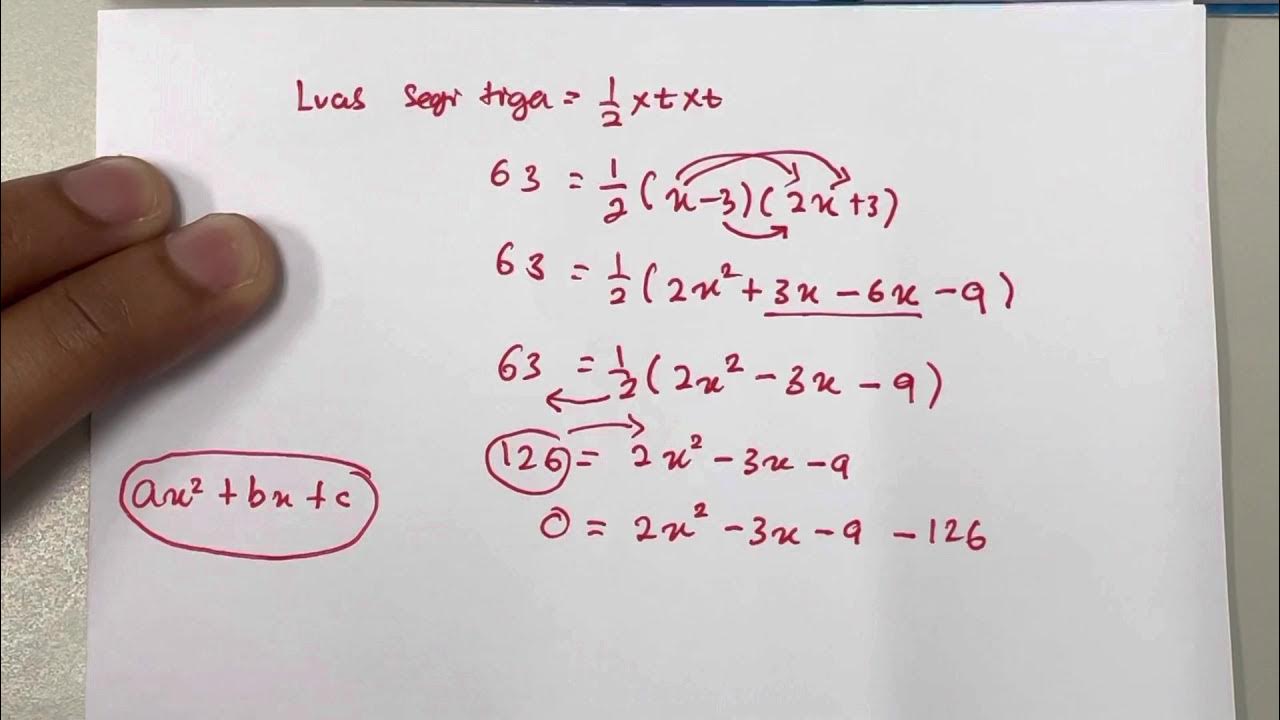 Luas segi tiga = 1/2 × t × t
63 = 1/2 (x - 3)(2x + 3)
63 = 1/2 (2x² + 3x - 6x - 9)
63 = 1/2 (2x² - 3x - 9)
126 = 2x² - 3x - 9
ax² + bx + c
0 = 2x² - 3x - 9 - 126